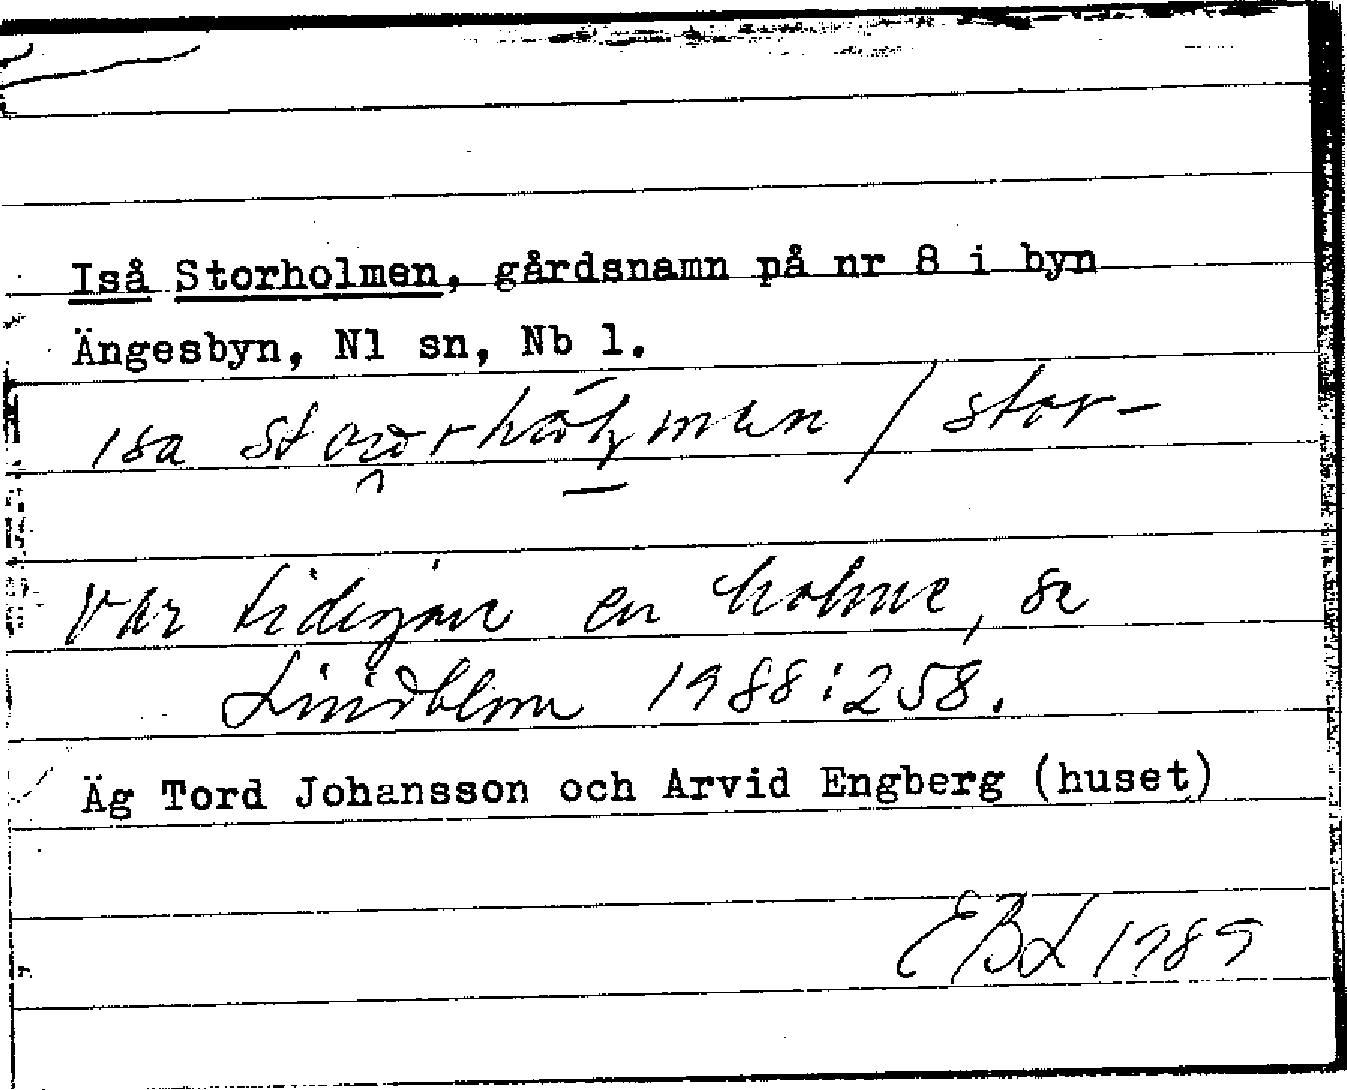 Iså Storholmen, gårdsnamn på nr 8 i byn
Ängesbyn, Nl sn, Nb l.
isa / stor-
Var tidigare en holme, se
Lindblom 1988:258.
Äg Tord Johansson och Arvid Engberg (huset)
EBL 1989